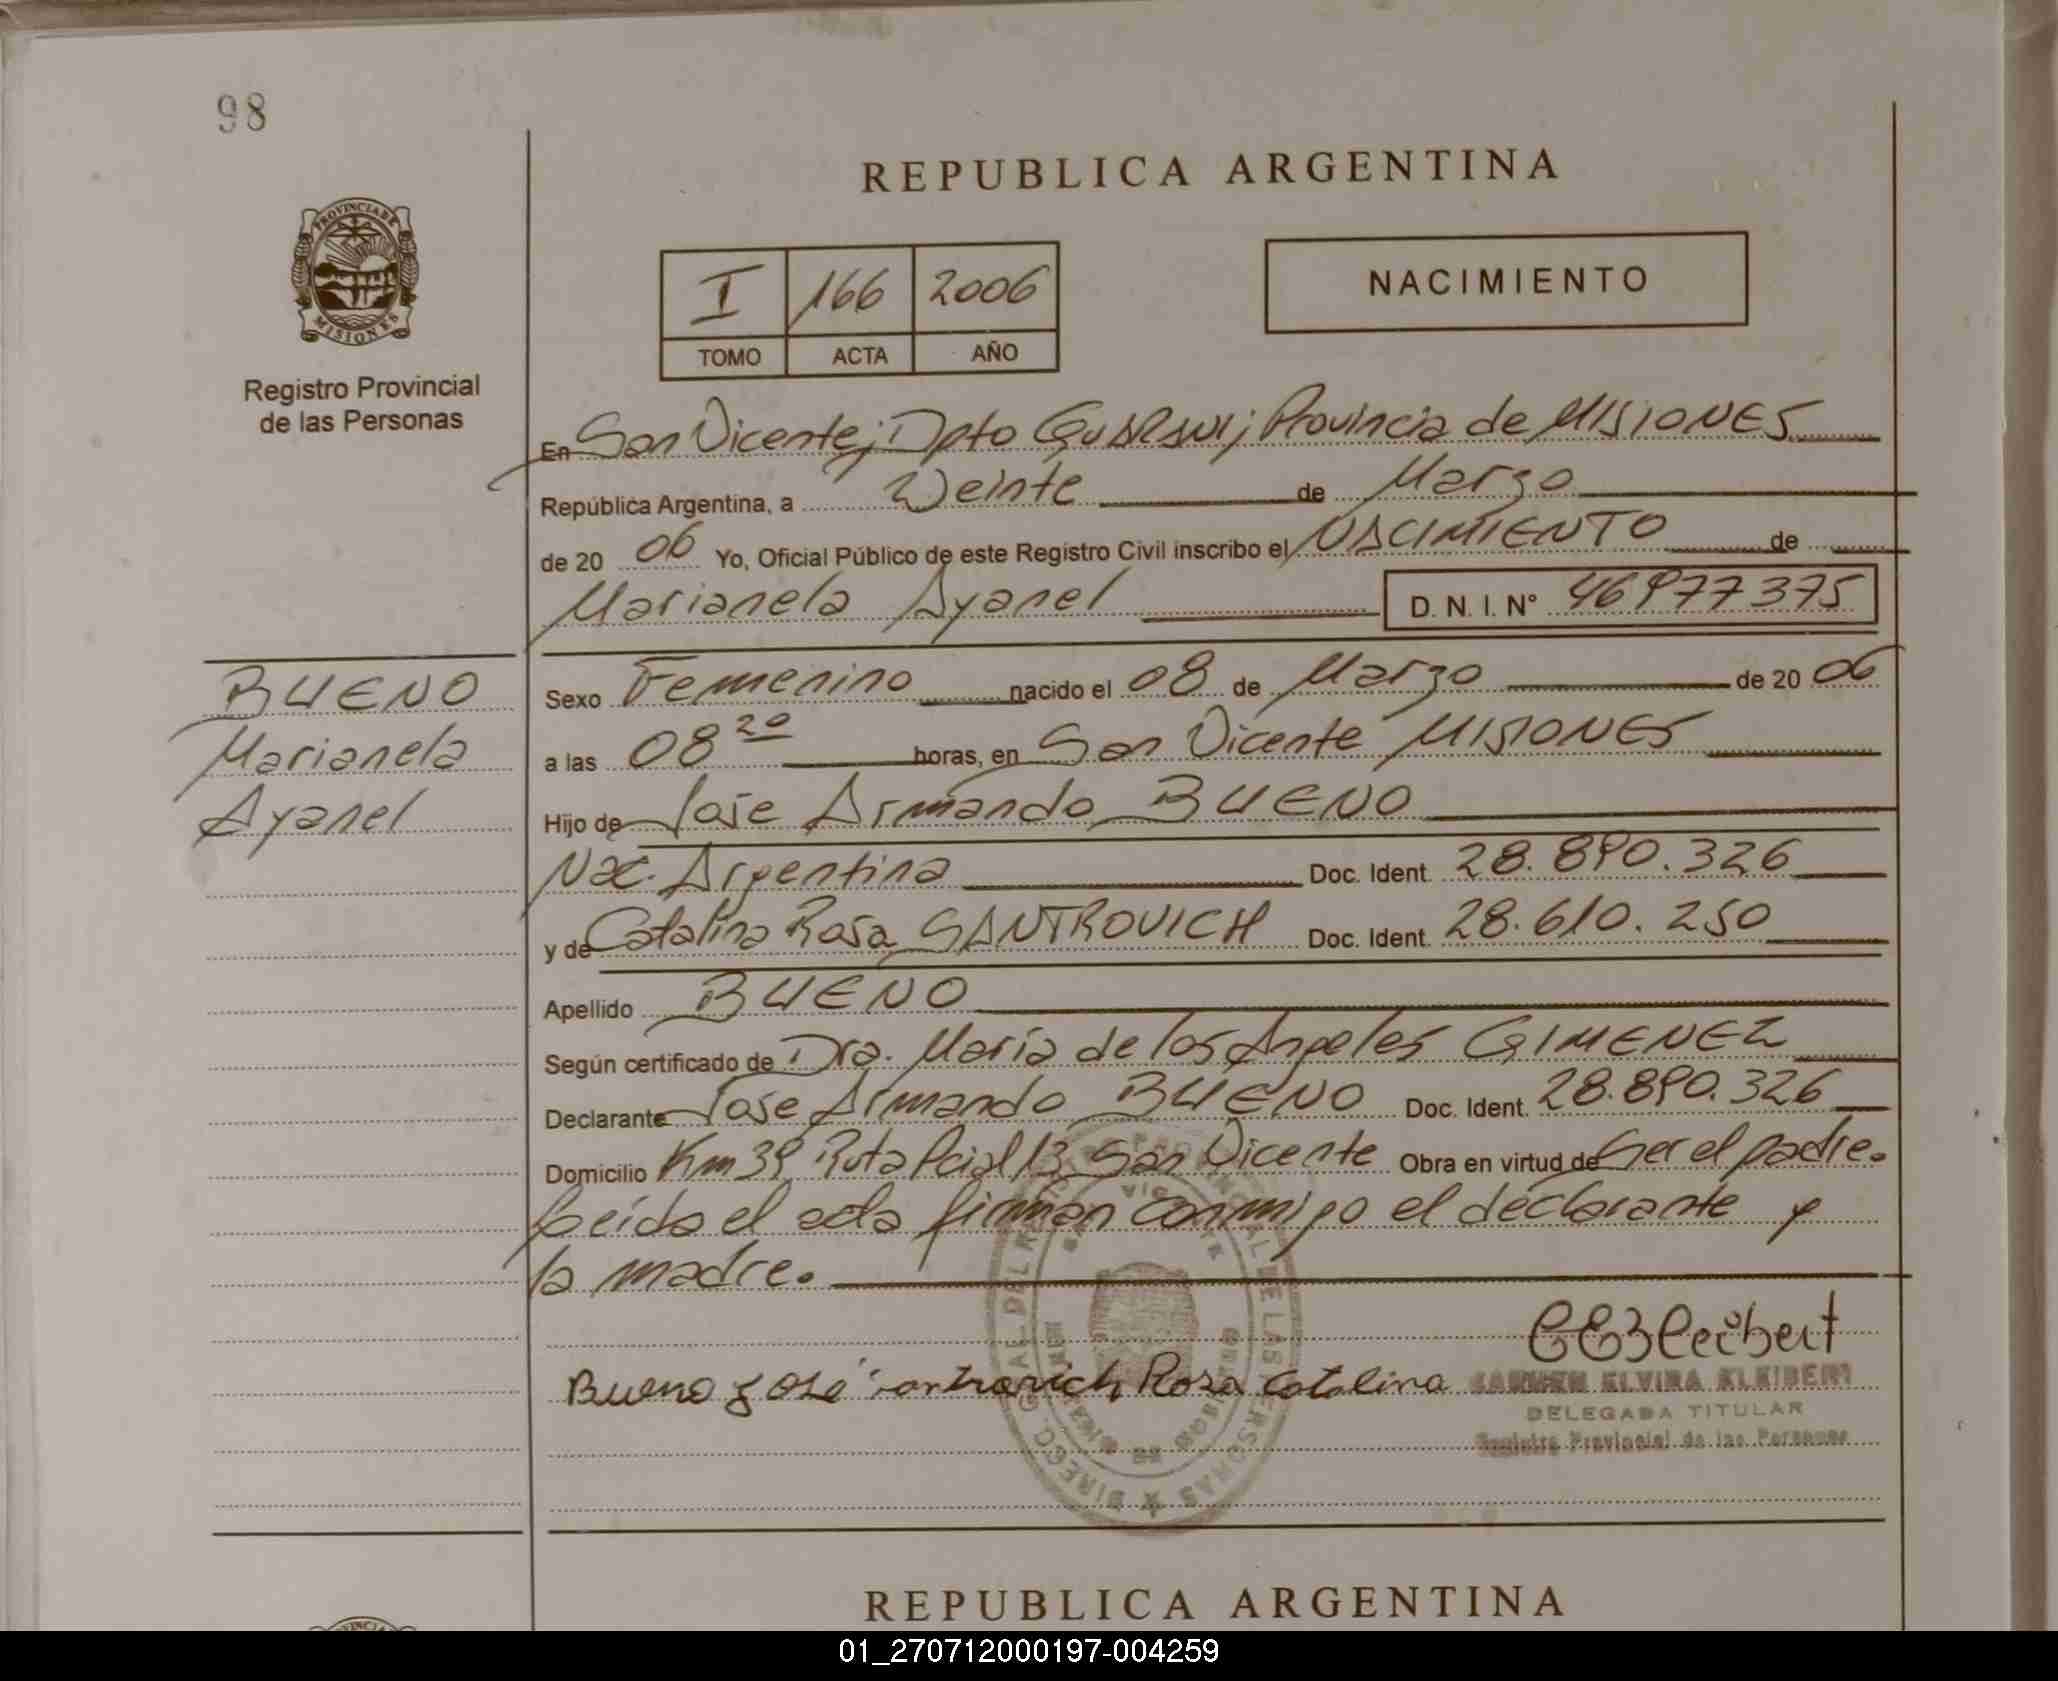 98
REPUBLICA ARGENTINA
PROVINCIA DE
MISIONES
Registro Provincial
de las Personas
I 166 2006
TOMO ACTA AÑO
NACIMIENTO
En San Vicente; Dpto Guarani; Provincia de MISIONES
República Argentina, a Veinte de Marzo
de 20 06 Yo, Oficial Público de este Registro Civil inscribo el NACIMIENTO de
Marianela Ayanel D. N. I. N° 46977375
BUENO
Marianela
Ayanel
Sexo Femenino nacido el 08 de Marzo de 20 06
a las 08 20 horas, en San Vicente MISIONES
Hijo de Jose Armando BUENO
Nac. Argentina Doc. Ident. 28.890.326
y de Catalina Rosa SANTROVICH Doc. Ident. 28.610.250
Apellido BUENO
Según certificado de Dra. María de los Angeles GIMENEZ
Declarante Jose Armando BUENO Doc. Ident. 28.890.326
Domicilio Km 39 Ruta Pcial 13 San Vicente Obra en virtud de Ser el padre.
Leída el acta firman conmigo el declarante y
la madre.
Bueno José Santrovich Rosa Catalina
CARMEN ELVIRA KLEIBERT
DELEGADA TITULAR
Registro Provincial de las Personas
REPUBLICA ARGENTINA
01_270712000197-004259